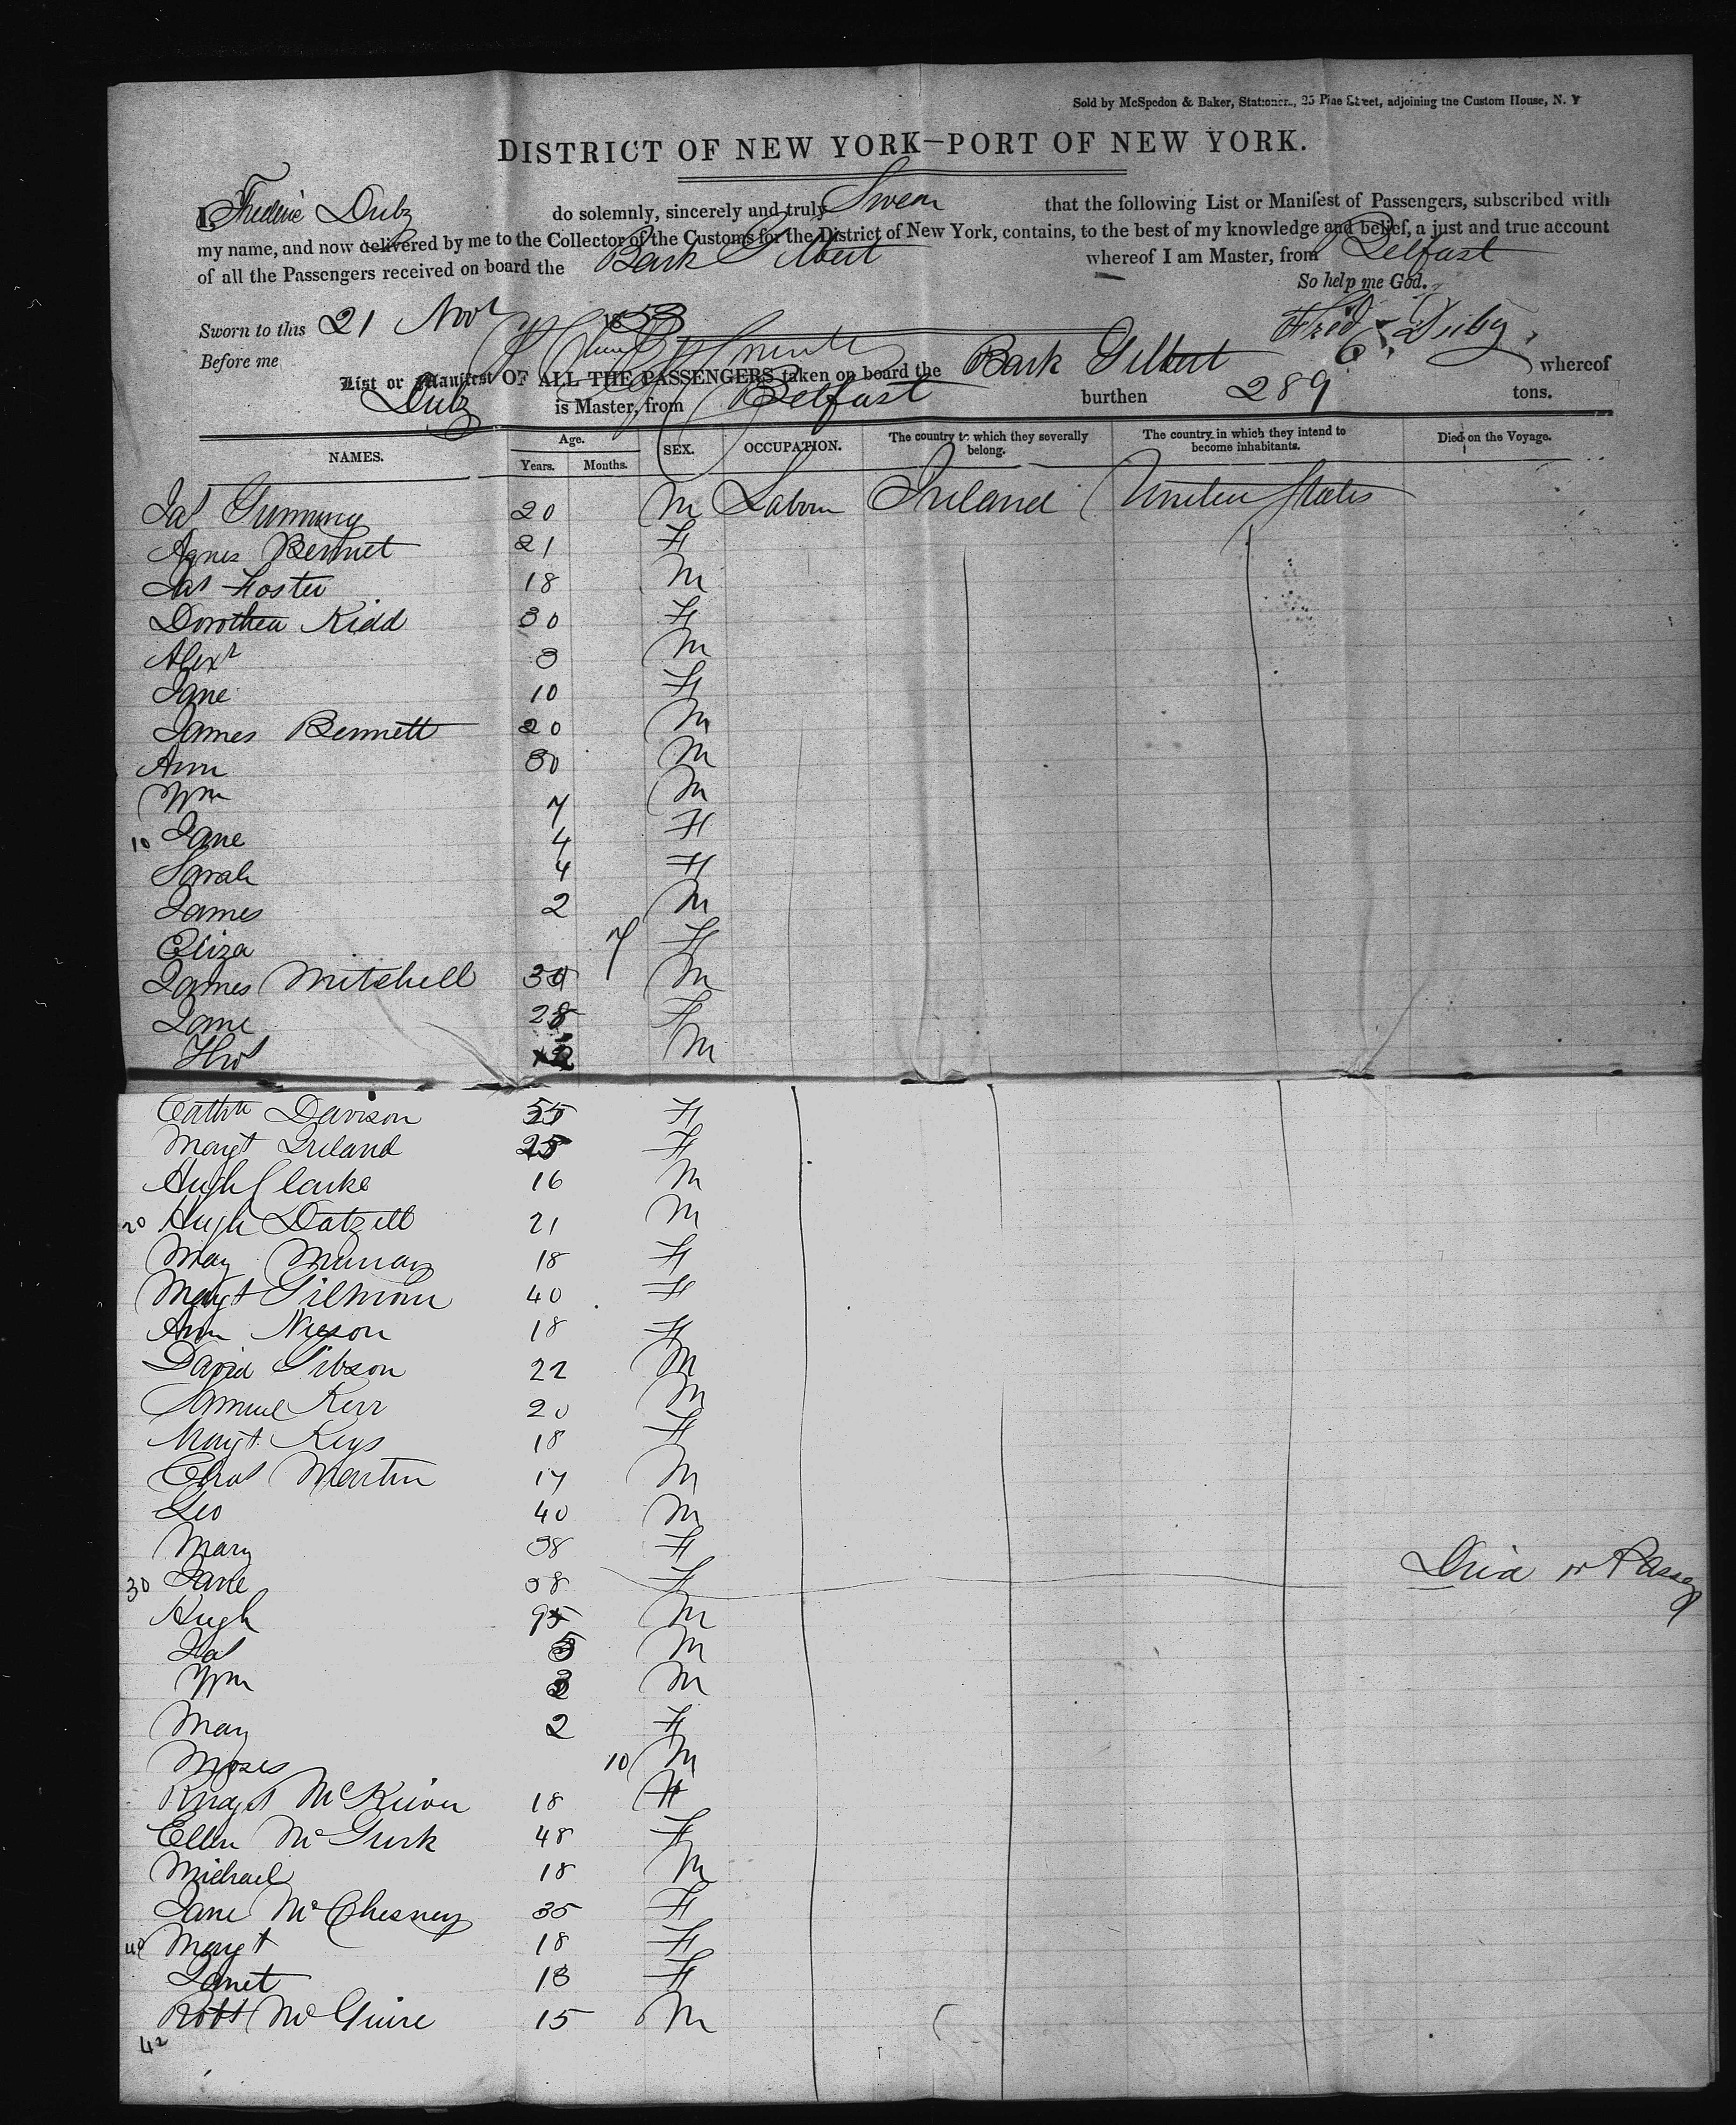 Sold by McSpedon & Baker, Stationers, 25 Pine Street, adjoining the Custom House, N. Y
DISTRICT OF NEW YORK—PORT OF NEW YORK.
I, Frederic Duby do solemnly, sincerely and truly Swear that the following List or Manifest of Passengers, subscribed with
my name, and now delivered by me to the Collector of the Customs for the District of New York, contains, to the best of my knowledge and belief, a just and true account
of all the Passengers received on board the Bark Gilbert whereof I am Master, from Belfast
So help me God.
Sworn to this 21 Novr 1853 Fred C. Duby
Before me
List or Manifest OF ALL THE PASSENGERS taken on board the Bark Gilbert whereof
Duby is Master, from Belfast burthen 289 tons.
NAMES. Age. Years. Months. SEX. OCCUPATION. The country to which they severally belong. The country in which they intend to become inhabitants. Died on the Voyage.
Jas Gumming 20 M Labour Ireland United States
Agnes Bennet 21 F
Jas Foster 18 M
Dorothea Kidd 30 F
Alexr 3 M
Jane 10 F
James Bennett 20 M
Ann 30 M
Wm 7 M
10 Jane 4 F
Sarah 4 F
James 2 M
Eliza 7 F
James Mitchell 30 M
Jane 28 F
Thos M
Cathne Davison 55 F
Margt Ireland 25 F
Hugh Clarke 16 M
20 Hugh Dalzell 21 M
May Murray 18 F
Margt Gilmour 40 F
Ann Nixon 18 F
David Gibson 22 M
Samuel Kerr 20 M
Margt Keys 18 F
Chas Martin 17 M
Geo 40 M
Mary 38 F
30 Jane 38 F Died on Passage
Hugh M
Jas 5 M
Wm 3 M
Mary 2 F
Moses 10 M
Bridget McKiver 18 F
Ellen McGurk 48 F
Michael 18 M
Jane McChesney 35 F
40 Margt 18 F
Janet 13 F
Robt McGuire 15 M
42